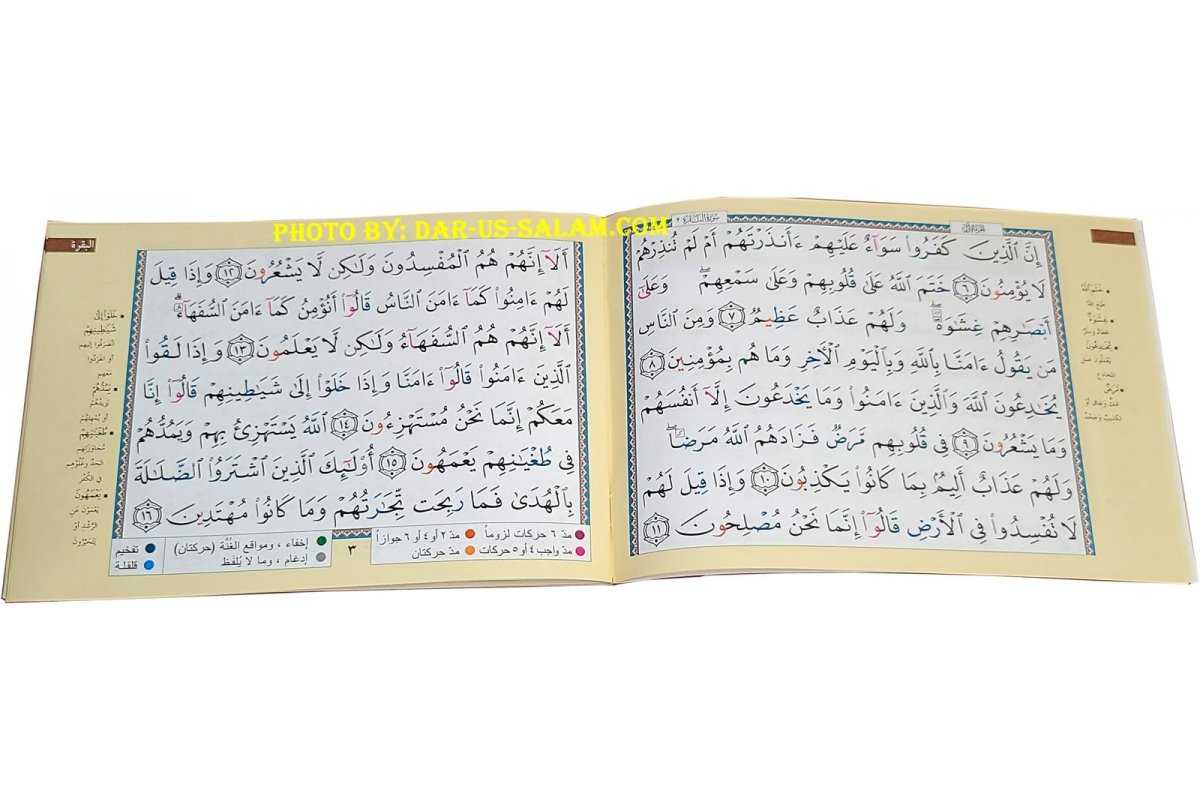 PHOTO BY: DAR-US-SALAM.COM
سورة البقرة ٢
إِنَّ ٱلَّذِينَ كَفَرُوا۟ سَوَآءٌ عَلَيْهِمْ ءَأَنذَرْتَهُمْ أَمْ لَمْ تُنذِرْهُمْ
لَا يُؤْمِنُونَ ٦ خَتَمَ ٱللَّهُ عَلَىٰ قُلُوبِهِمْ وَعَلَىٰ سَمْعِهِمْ ۖ وَعَلَىٰٓ
أَبْصَٰرِهِمْ غِشَٰوَةٌ ۖ وَلَهُمْ عَذَابٌ عَظِيمٌ ٧ وَمِنَ ٱلنَّاسِ
مَن يَقُولُ ءَامَنَّا بِٱللَّهِ وَبِٱلْيَوْمِ ٱلْءَاخِرِ وَمَا هُم بِمُؤْمِنِينَ ٨
يُخَٰدِعُونَ ٱللَّهَ وَٱلَّذِينَ ءَامَنُوا۟ وَمَا يَخْدَعُونَ إِلَّآ أَنفُسَهُمْ
وَمَا يَشْعُرُونَ ٩ فِى قُلُوبِهِم مَّرَضٌ فَزَادَهُمُ ٱللَّهُ مَرَضًا ۖ
وَلَهُمْ عَذَابٌ أَلِيمٌۢ بِمَا كَانُوا۟ يَكْذِبُونَ ١٠ وَإِذَا قِيلَ لَهُمْ
لَا تُفْسِدُوا۟ فِى ٱلْأَرْضِ قَالُوٓا۟ إِنَّمَا نَحْنُ مُصْلِحُونَ ١١
البقرة
أَلَآ إِنَّهُمْ هُمُ ٱلْمُفْسِدُونَ وَلَٰكِن لَّا يَشْعُرُونَ ١٢ وَإِذَا قِيلَ
لَهُمْ ءَامِنُوا۟ كَمَآ ءَامَنَ ٱلنَّاسُ قَالُوٓا۟ أَنُؤْمِنُ كَمَآ ءَامَنَ ٱلسُّفَهَآءُ ۗ
أَلَآ إِنَّهُمْ هُمُ ٱلسُّفَهَآءُ وَلَٰكِن لَّا يَعْلَمُونَ ١٣ وَإِذَا لَقُوا۟
ٱلَّذِينَ ءَامَنُوا۟ قَالُوٓا۟ ءَامَنَّا وَإِذَا خَلَوْا۟ إِلَىٰ شَيَٰطِينِهِمْ قَالُوٓا۟ إِنَّا
مَعَكُمْ إِنَّمَا نَحْنُ مُسْتَهْزِءُونَ ١٤ ٱللَّهُ يَسْتَهْزِئُ بِهِمْ وَيَمُدُّهُمْ
فِى طُغْيَٰنِهِمْ يَعْمَهُونَ ١٥ أُو۟لَٰٓئِكَ ٱلَّذِينَ ٱشْتَرَوُا۟ ٱلضَّلَٰلَةَ
بِٱلْهُدَىٰ فَمَا رَبِحَت تِّجَٰرَتُهُمْ وَمَا كَانُوا۟ مُهْتَدِينَ ١٦
خَلَوْا إلى
شَيَاطِينِهِمْ
انصرفوا إليهم
أو انفردوا
معهم
يَمُدُّهُمْ
يزيدهم
أو يُمهِلهم
طُغْيَانِهِمْ
يَعْمَهُونَ
مدّ ٦ حركات لزوماً
مدّ ٢ أو ٤ أو ٦ جوازاً
مدّ واجب ٤ أو ٥ حركات
مدّ حركتان
٣
إخفاء ، ومواقع الغُنَّة (حركتان)
إدغام ، وما لا يُلفَظ
تفخيم
قلقلة